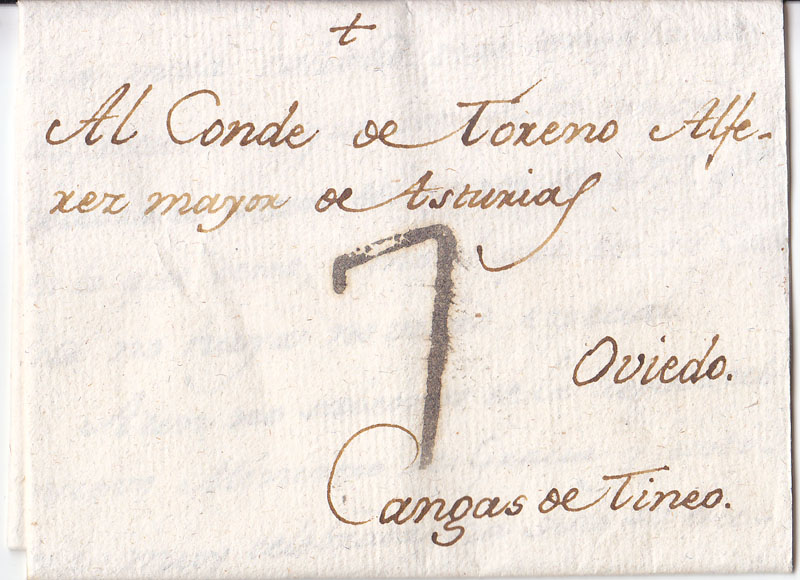 +
Al Conde de Toreno Alfe-
rez mayor de Asturias
7
Oviedo.
Cangas de Tineo.